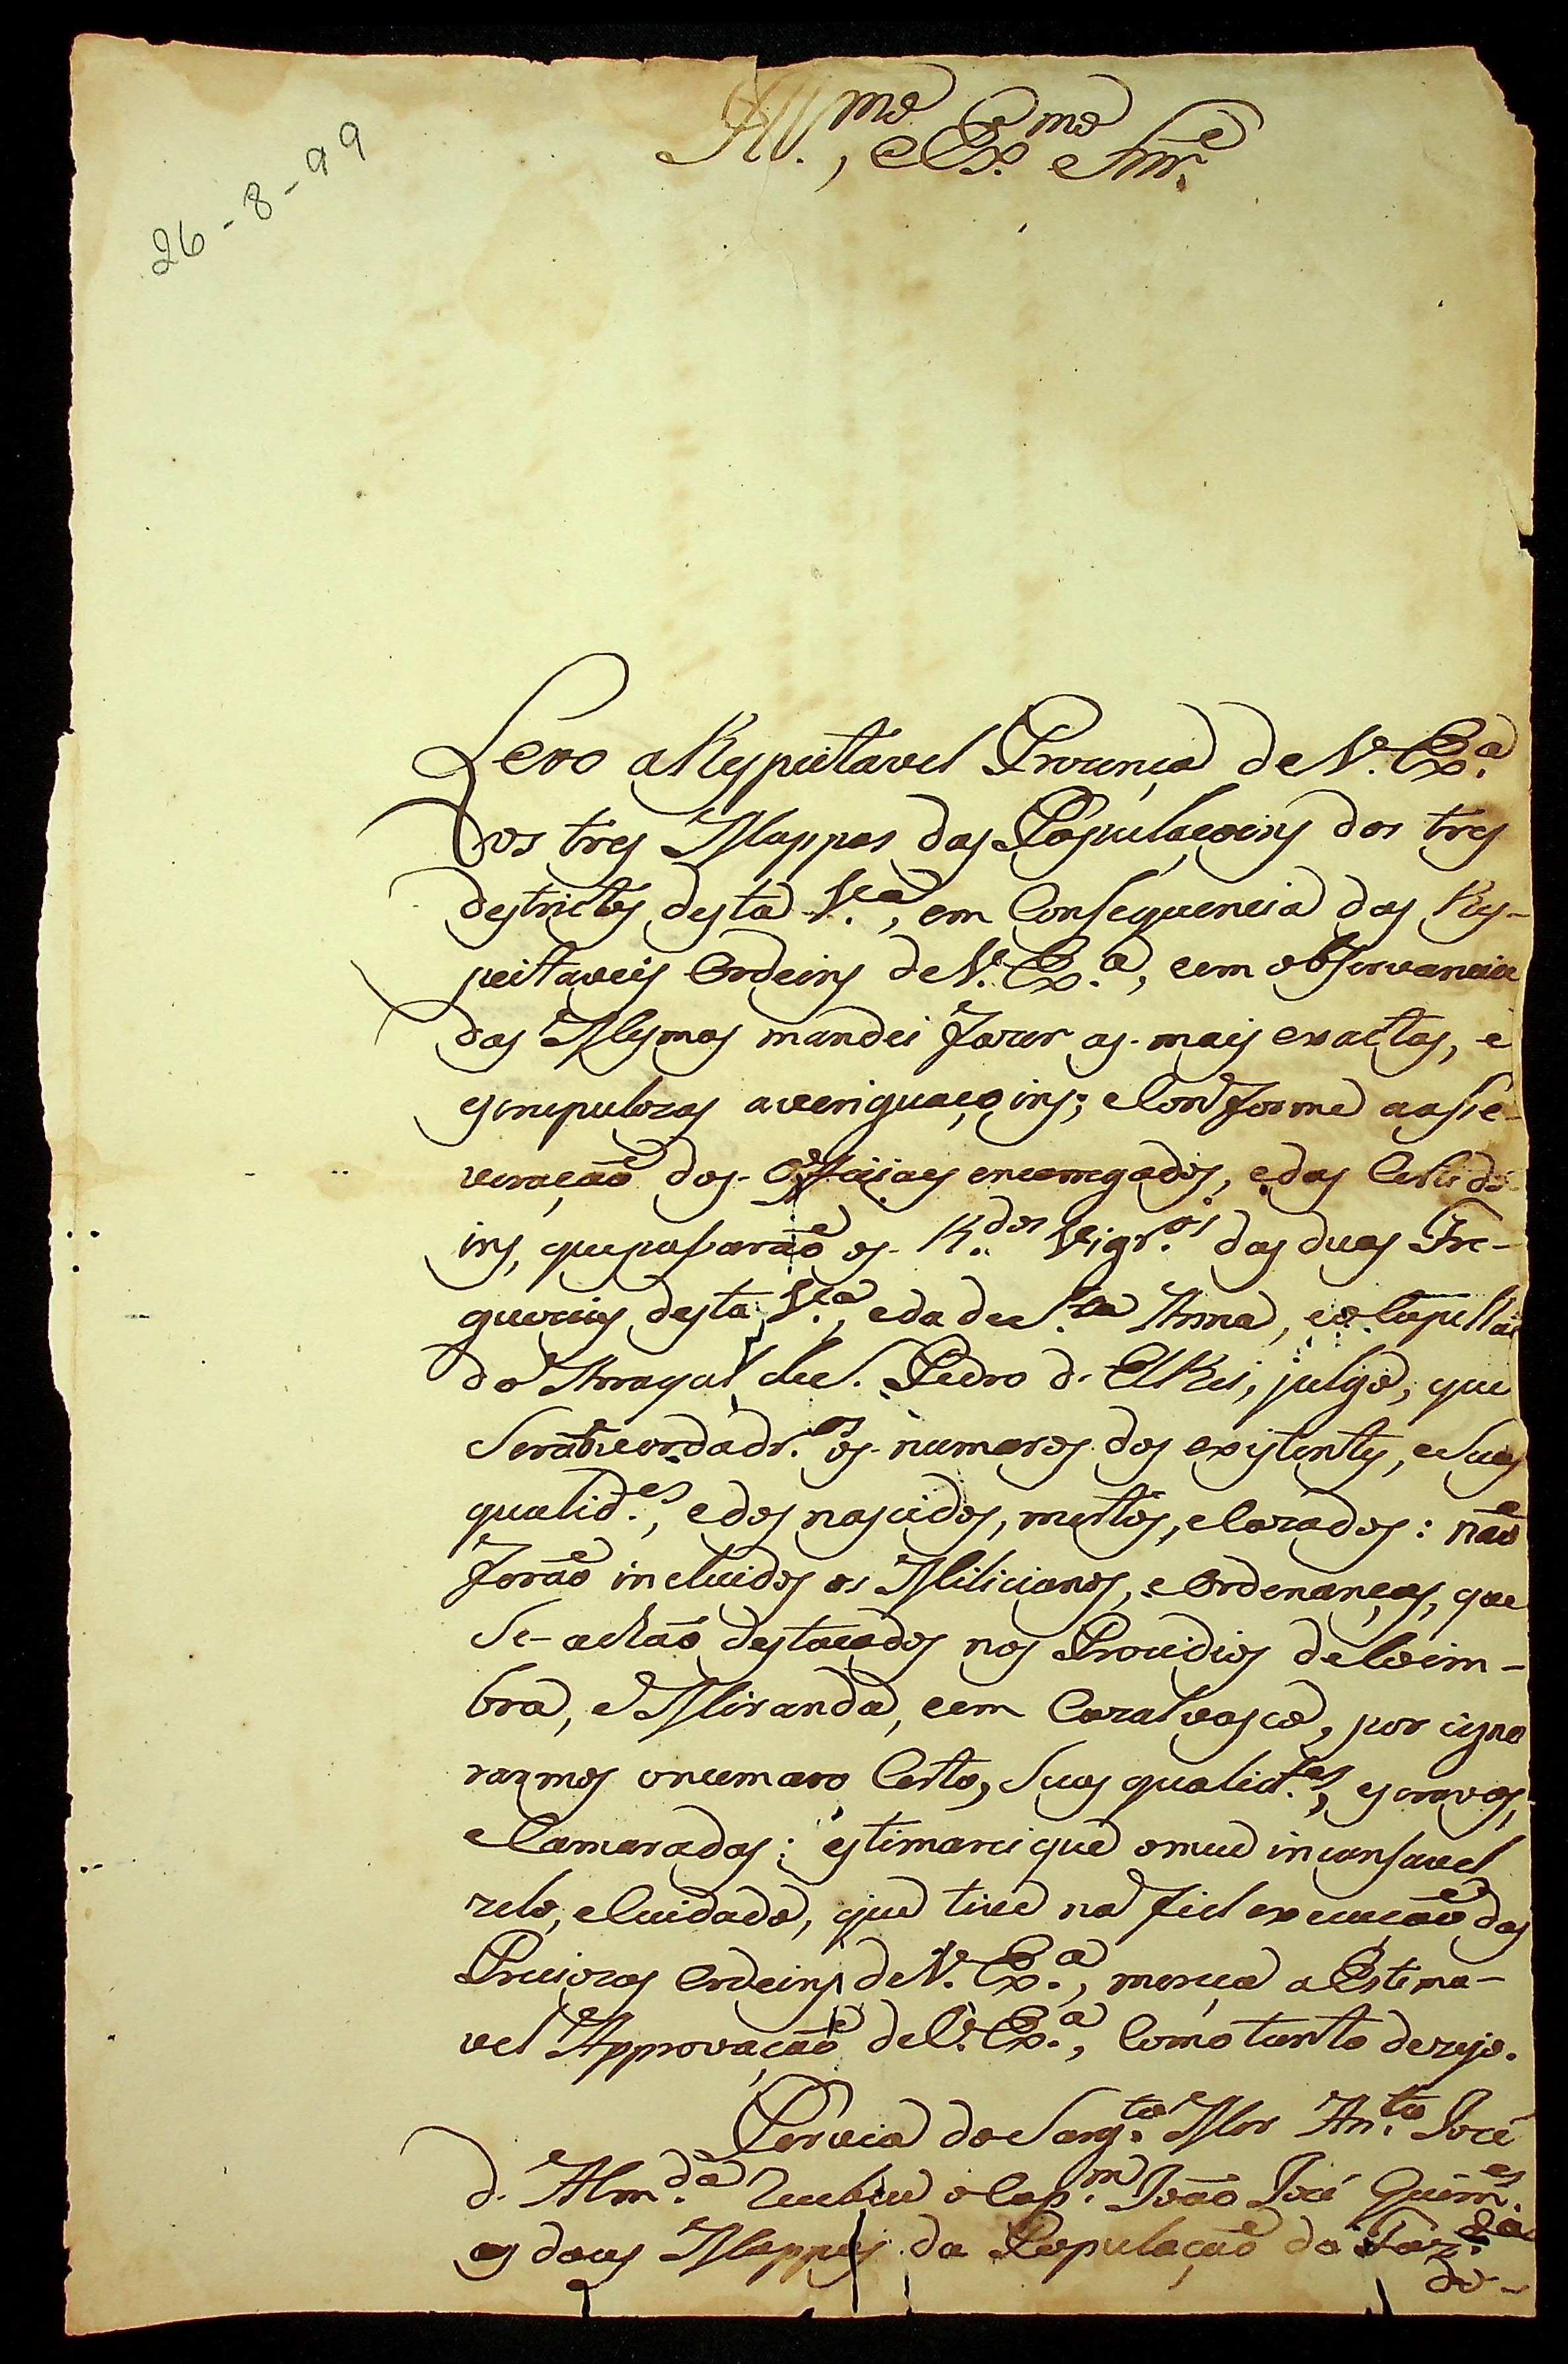 26-8-99
Ill.mo, e Ex.mo Snr.e
Levo a Respeitavel Prezença de V. Ex.a
os tres Mappas das Populaçoins dos tres
destrictos desta V.a, em Consequencia das Res-
peitaveis Ordeins de V. Ex.a, e em observancia
das Mesmas mandei fazer as mais exactas, e
escrupulozas averiguaçoins; e Conforme a asse-
veração dos Officiaes encarregados, e das Certido-
ins, que pasarão os R.dos Vigr.os das duas Fre-
guezias desta V.a, e da de S.ta Anna, e o Capellão
do Arrayal de S. Pedro d'El Rei, julgo, que
Serão verdadr.os os numaros dos existentes, e Suas
qualid.es, e dos nascidos, mortos, e Cazados: não
forão incluidos os Milicianos, e Ordenanças, que
Se-achão destacados nos Prezidios de Coim-
bra, e Miranda, e em Cazalvasco, por igno
rarmos o numaro Certo, Suas qualid.es, escravos,
e Camaradas: estimarei que o meu incansavel
zelo, e Cuidado, que tive na fiel execução das
Preciozas Ordeins de V. Ex.a, mereça a Estima-
vel Approvação de V. Ex.a, Como tanto dezejo.
Por via do Sarg.to Mor An.to Jozé
d'Alm.da Recebeu o Cap.m João Jozé Guim.es
os dous Mappas da População da Faz.da
do-